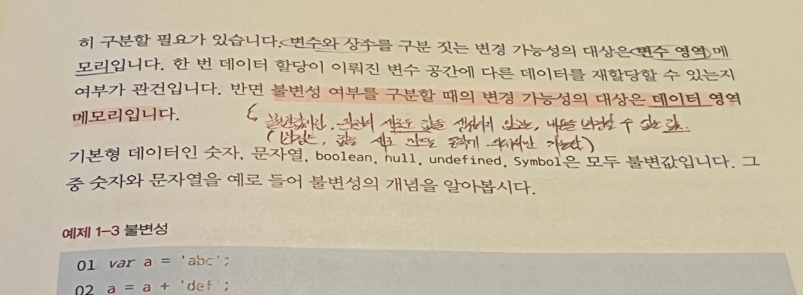 히 구분할 필요가 있습니다. 변수와 상수를 구분 짓는 변경 가능성의 대상은 변수 영역 메
모리입니다. 한 번 데이터 할당이 이뤄진 변수 공간에 다른 데이터를 재할당할 수 있는지
여부가 관건입니다. 반면 불변성 여부를 구분할 때의 변경 가능성의 대상은 데이터 영역
메모리입니다.
새로운 값을 생성하지 않고는, 내용을 변경할 수 없는 값.
값을 새로 만드는 가능)
기본형 데이터인 숫자, 문자열, boolean, null, undefined, Symbol은 모두 불변값입니다. 그
중 숫자와 문자열을 예로 들어 불변성의 개념을 알아봅시다.
예제 1-3 불변성
01 var a = 'abc';
02 a = a + 'def';